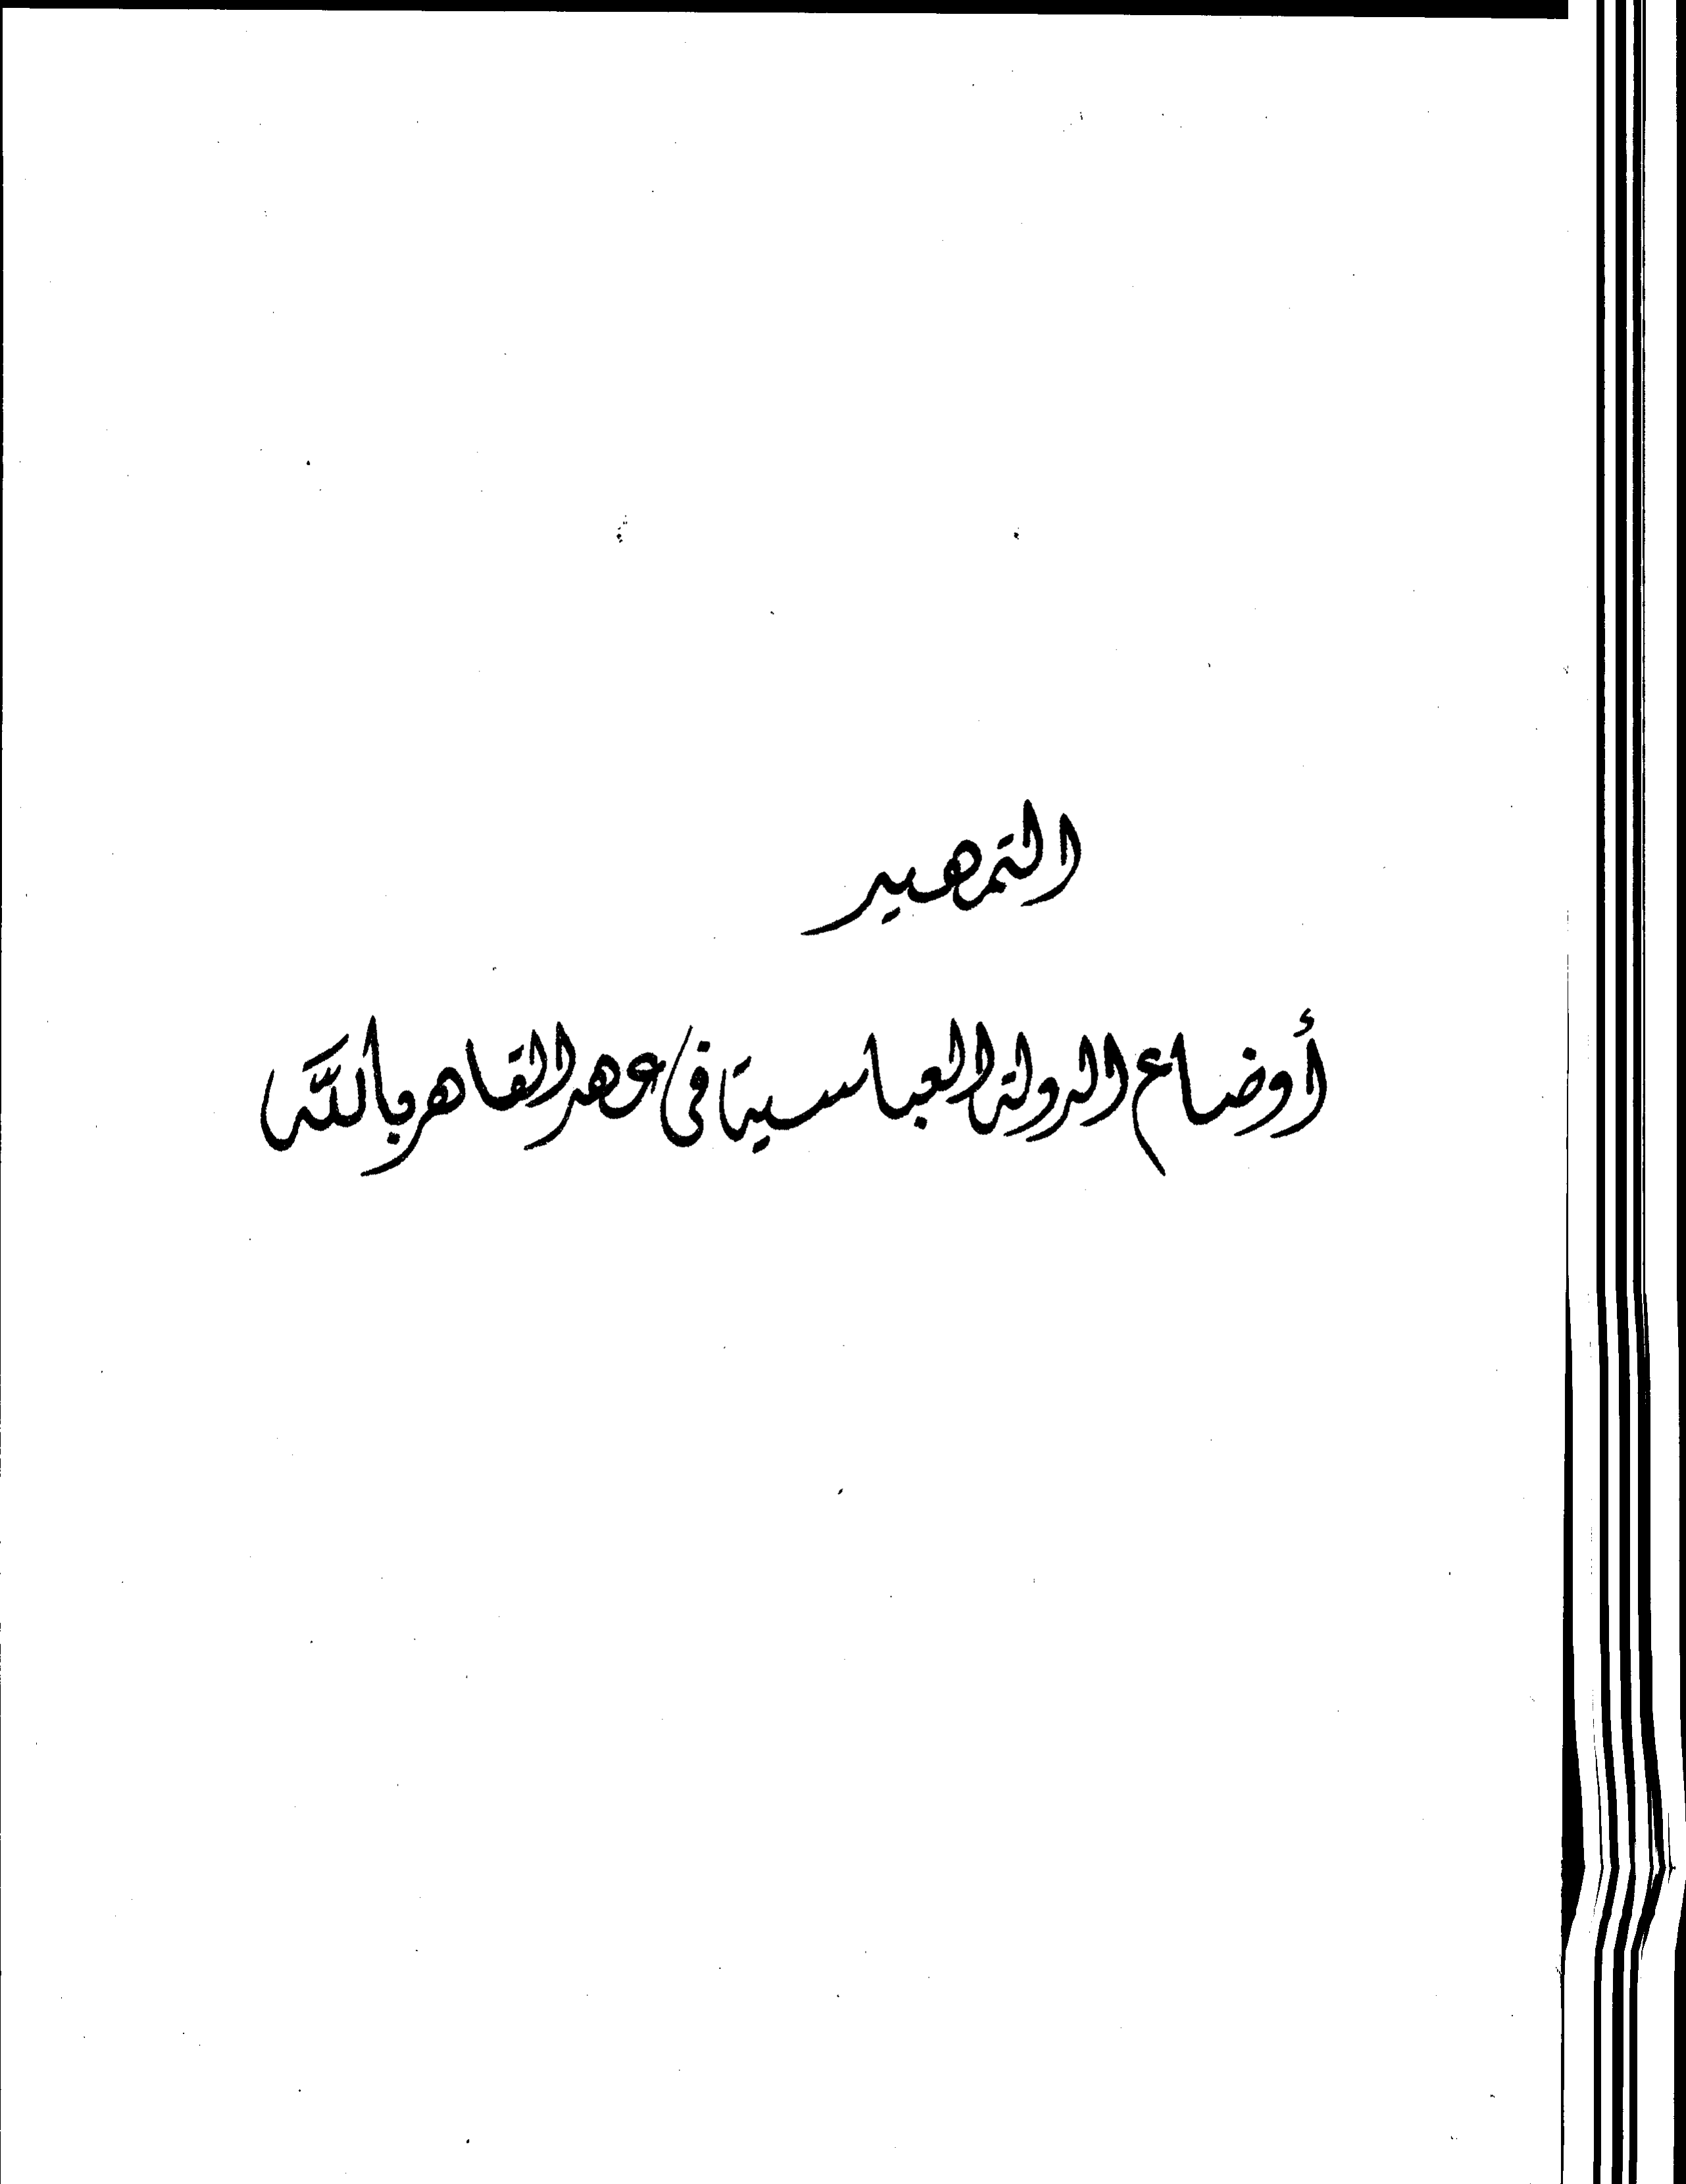 التمهيد
أوضاع الدولة العباسية فى عهد القاهر بالله